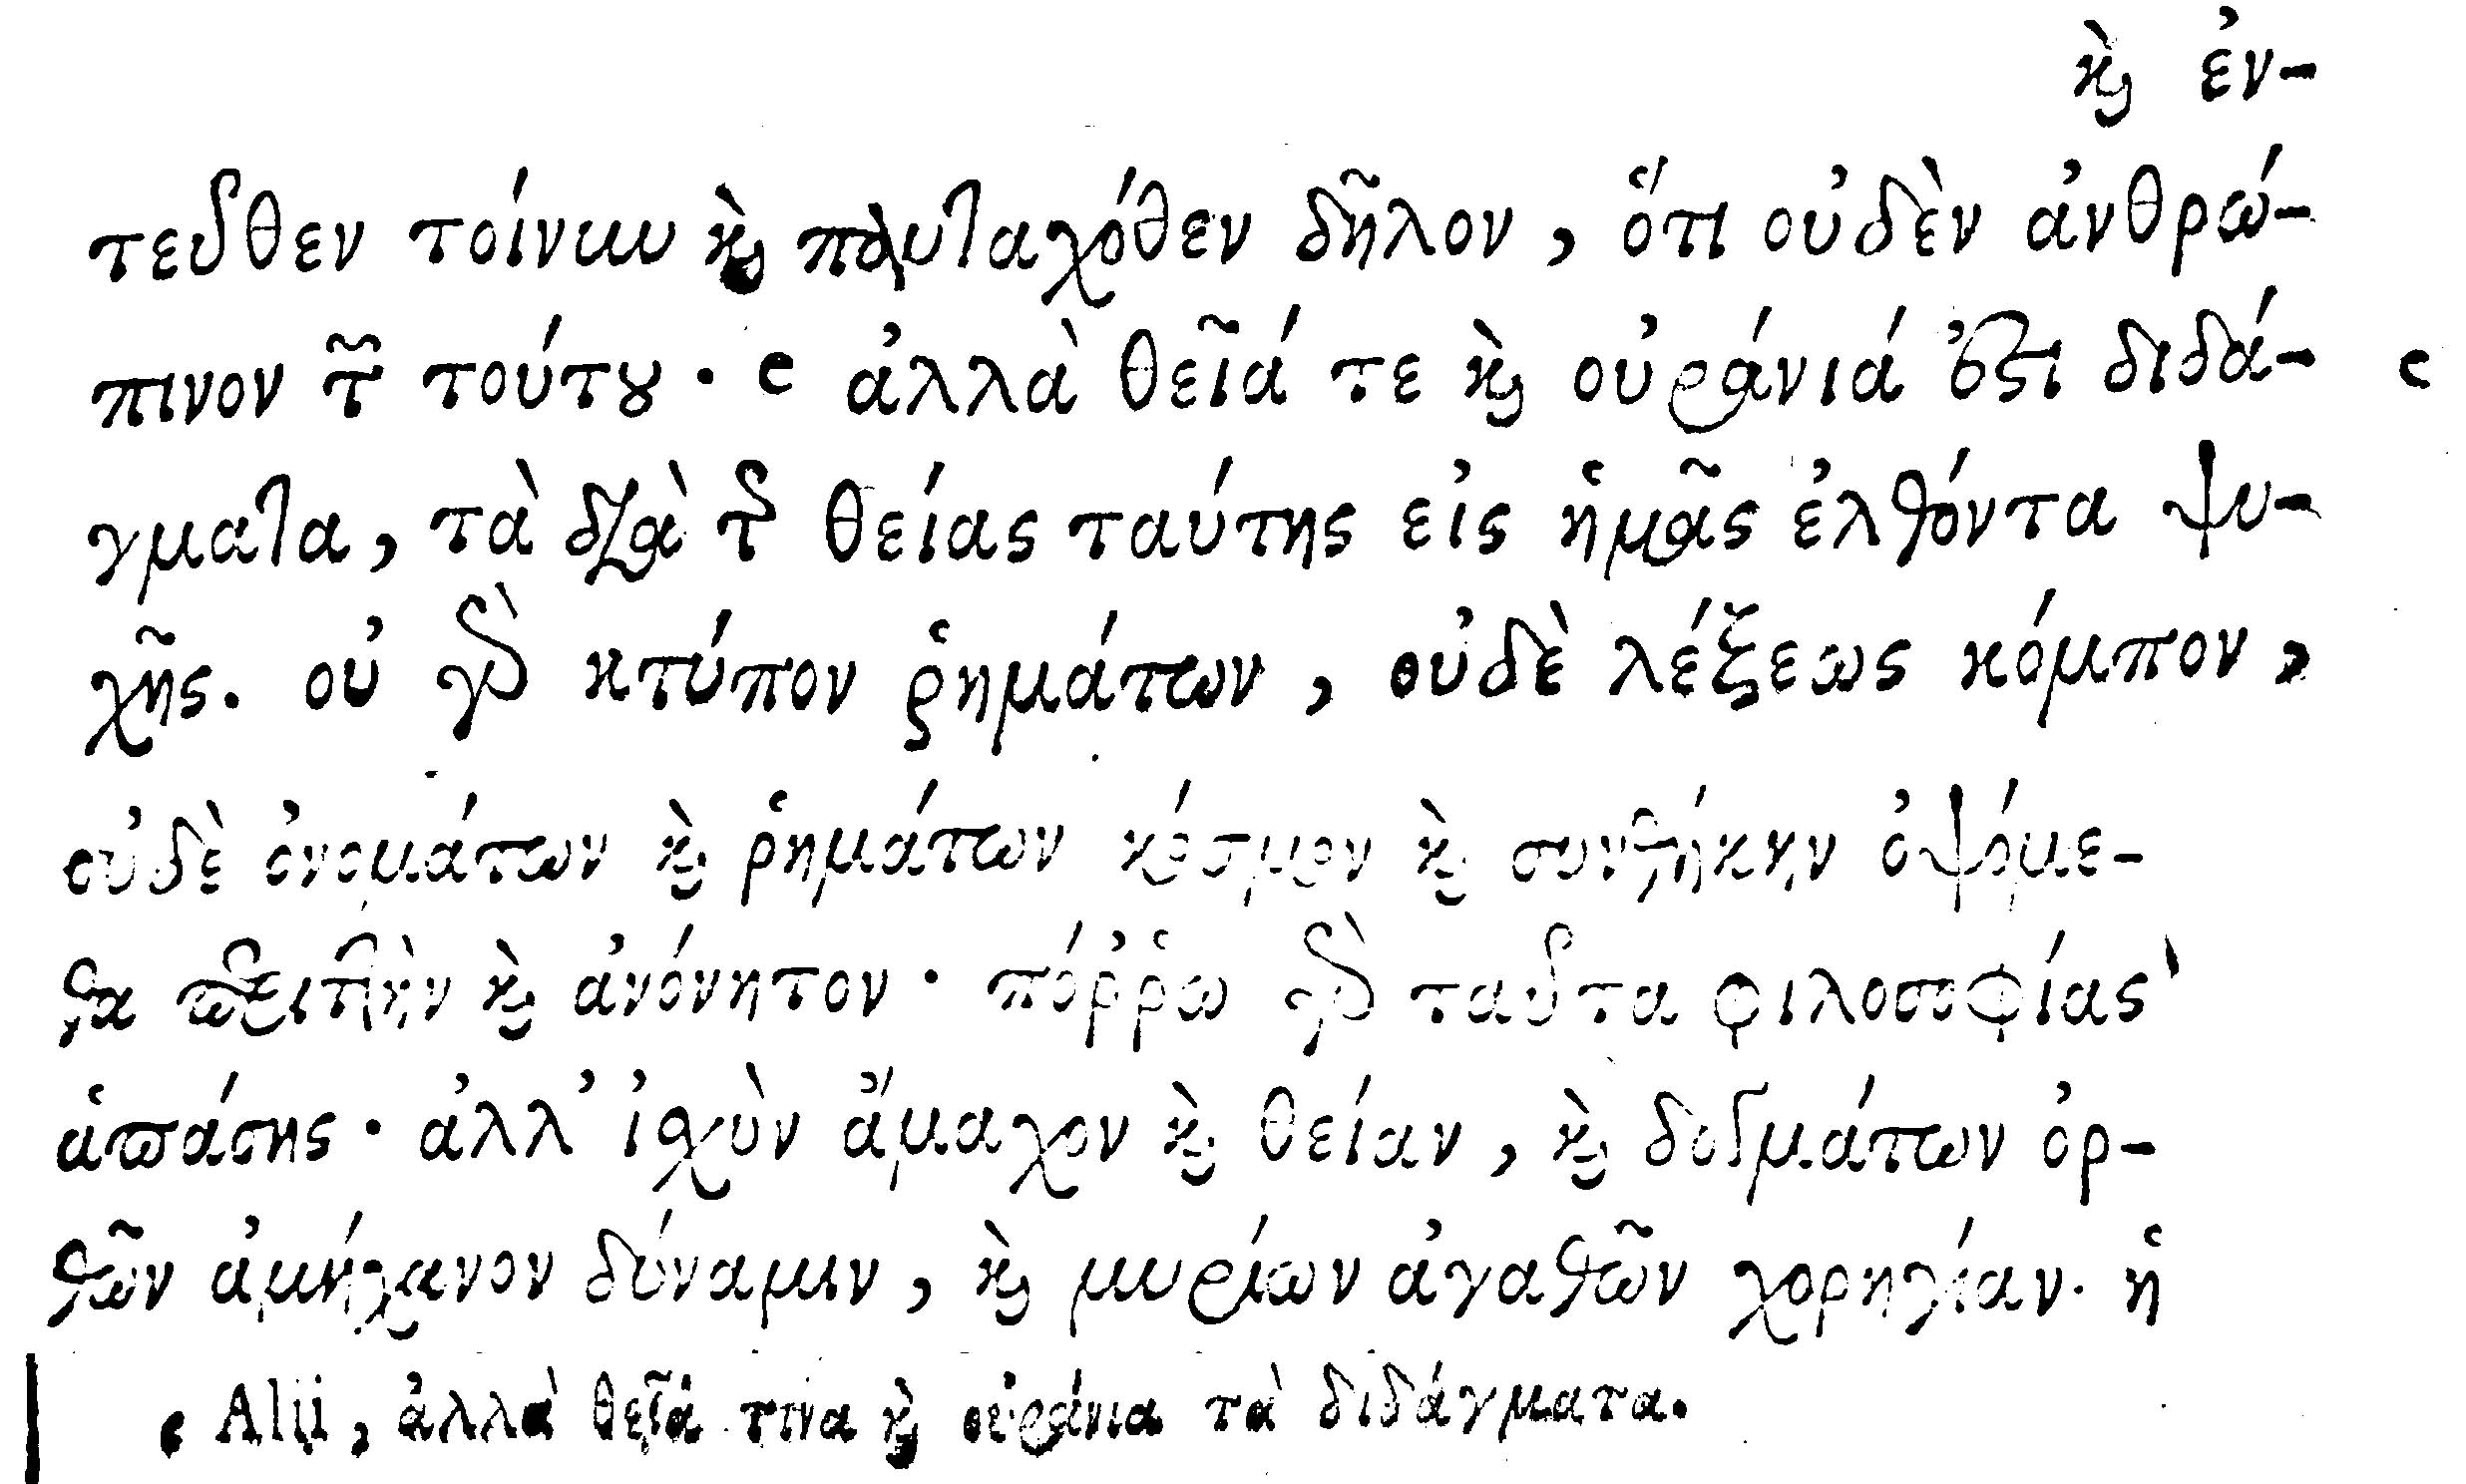 καὶ ἐν-
τεῦθεν τοίνυν καὶ πανταχόθεν δῆλον, ὅτι οὐδὲν ἀνθρώ-
πινον τὸ τούτου · c ἀλλὰ θεῖά τε καὶ οὐράνιά ἐστι διδά- c
γματα, τὰ διὰ τῆς θείας ταύτης εἰς ἡμᾶς ἐλθόντα ψυ-
χῆς. οὐ γὰρ κτύπον ῥημάτων, οὐδὲ λέξεως κόμπον,
οὐδὲ ὀνομάτων καὶ ῥημάτων κόσμον καὶ συνθήκην ὀψόμε-
θα περιττὴν καὶ ἀνόνητον · πόῤῥω γὰρ ταῦτα φιλοσοφίας
ἁπάσης · ἀλλ' ἰσχὺν ἄμαχον καὶ θείαν, καὶ δογμάτων ὀρ-
θῶν ἀμήχανον δύναμιν, καὶ μυρίων ἀγαθῶν χορηγίαν. ἡ
c Alii, ἀλλὰ θεῖά τινα καὶ οὐράνια τὰ διδάγματα.